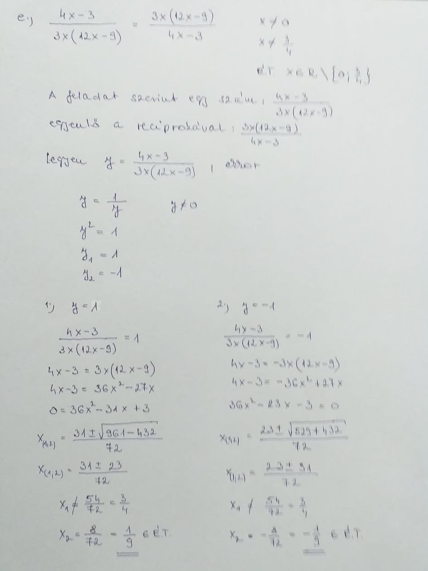 e.) (4x-3)/(3x(12x-9)) = (3x(12x-9))/(4x-3)   x ≠ 0
x ≠ 3/4
ÉT x∈R\{0; 3/4}
A feladat szerint egy szám; (4x-3)/(3x(12x-9))
egyenlő a reciprokával: (3x(12x-9))/(4x-3)
legyen y = (4x-3)/(3x(12x-9)), error
y = 1/y   y≠0
y² = 1
y₁ = 1
y₂ = -1
1.) y = 1
(4x-3)/(3x(12x-9)) = 1
4x-3 = 3x(12x-9)
4x-3 = 36x²-27x
0 = 36x²-31x+3
x(1,2) = (31±√(961-432))/72
x(1,2) = (31±23)/72
x₁ ≠ 54/72 = 3/4
x₂ = 8/72 = 1/9 ∈ É.T.
2.) y = -1
(4x-3)/(3x(12x-9)) = -1
4x-3 = -3x(12x-9)
4x-3 = -36x²+27x
36x²-23x-3 = 0
x(1,2) = (23±√(529+432))/72
x(1,2) = (23±31)/72
x₁ ≠ 54/72 = 3/4
x₂ = -8/72 = -1/9 ∈ É.T.